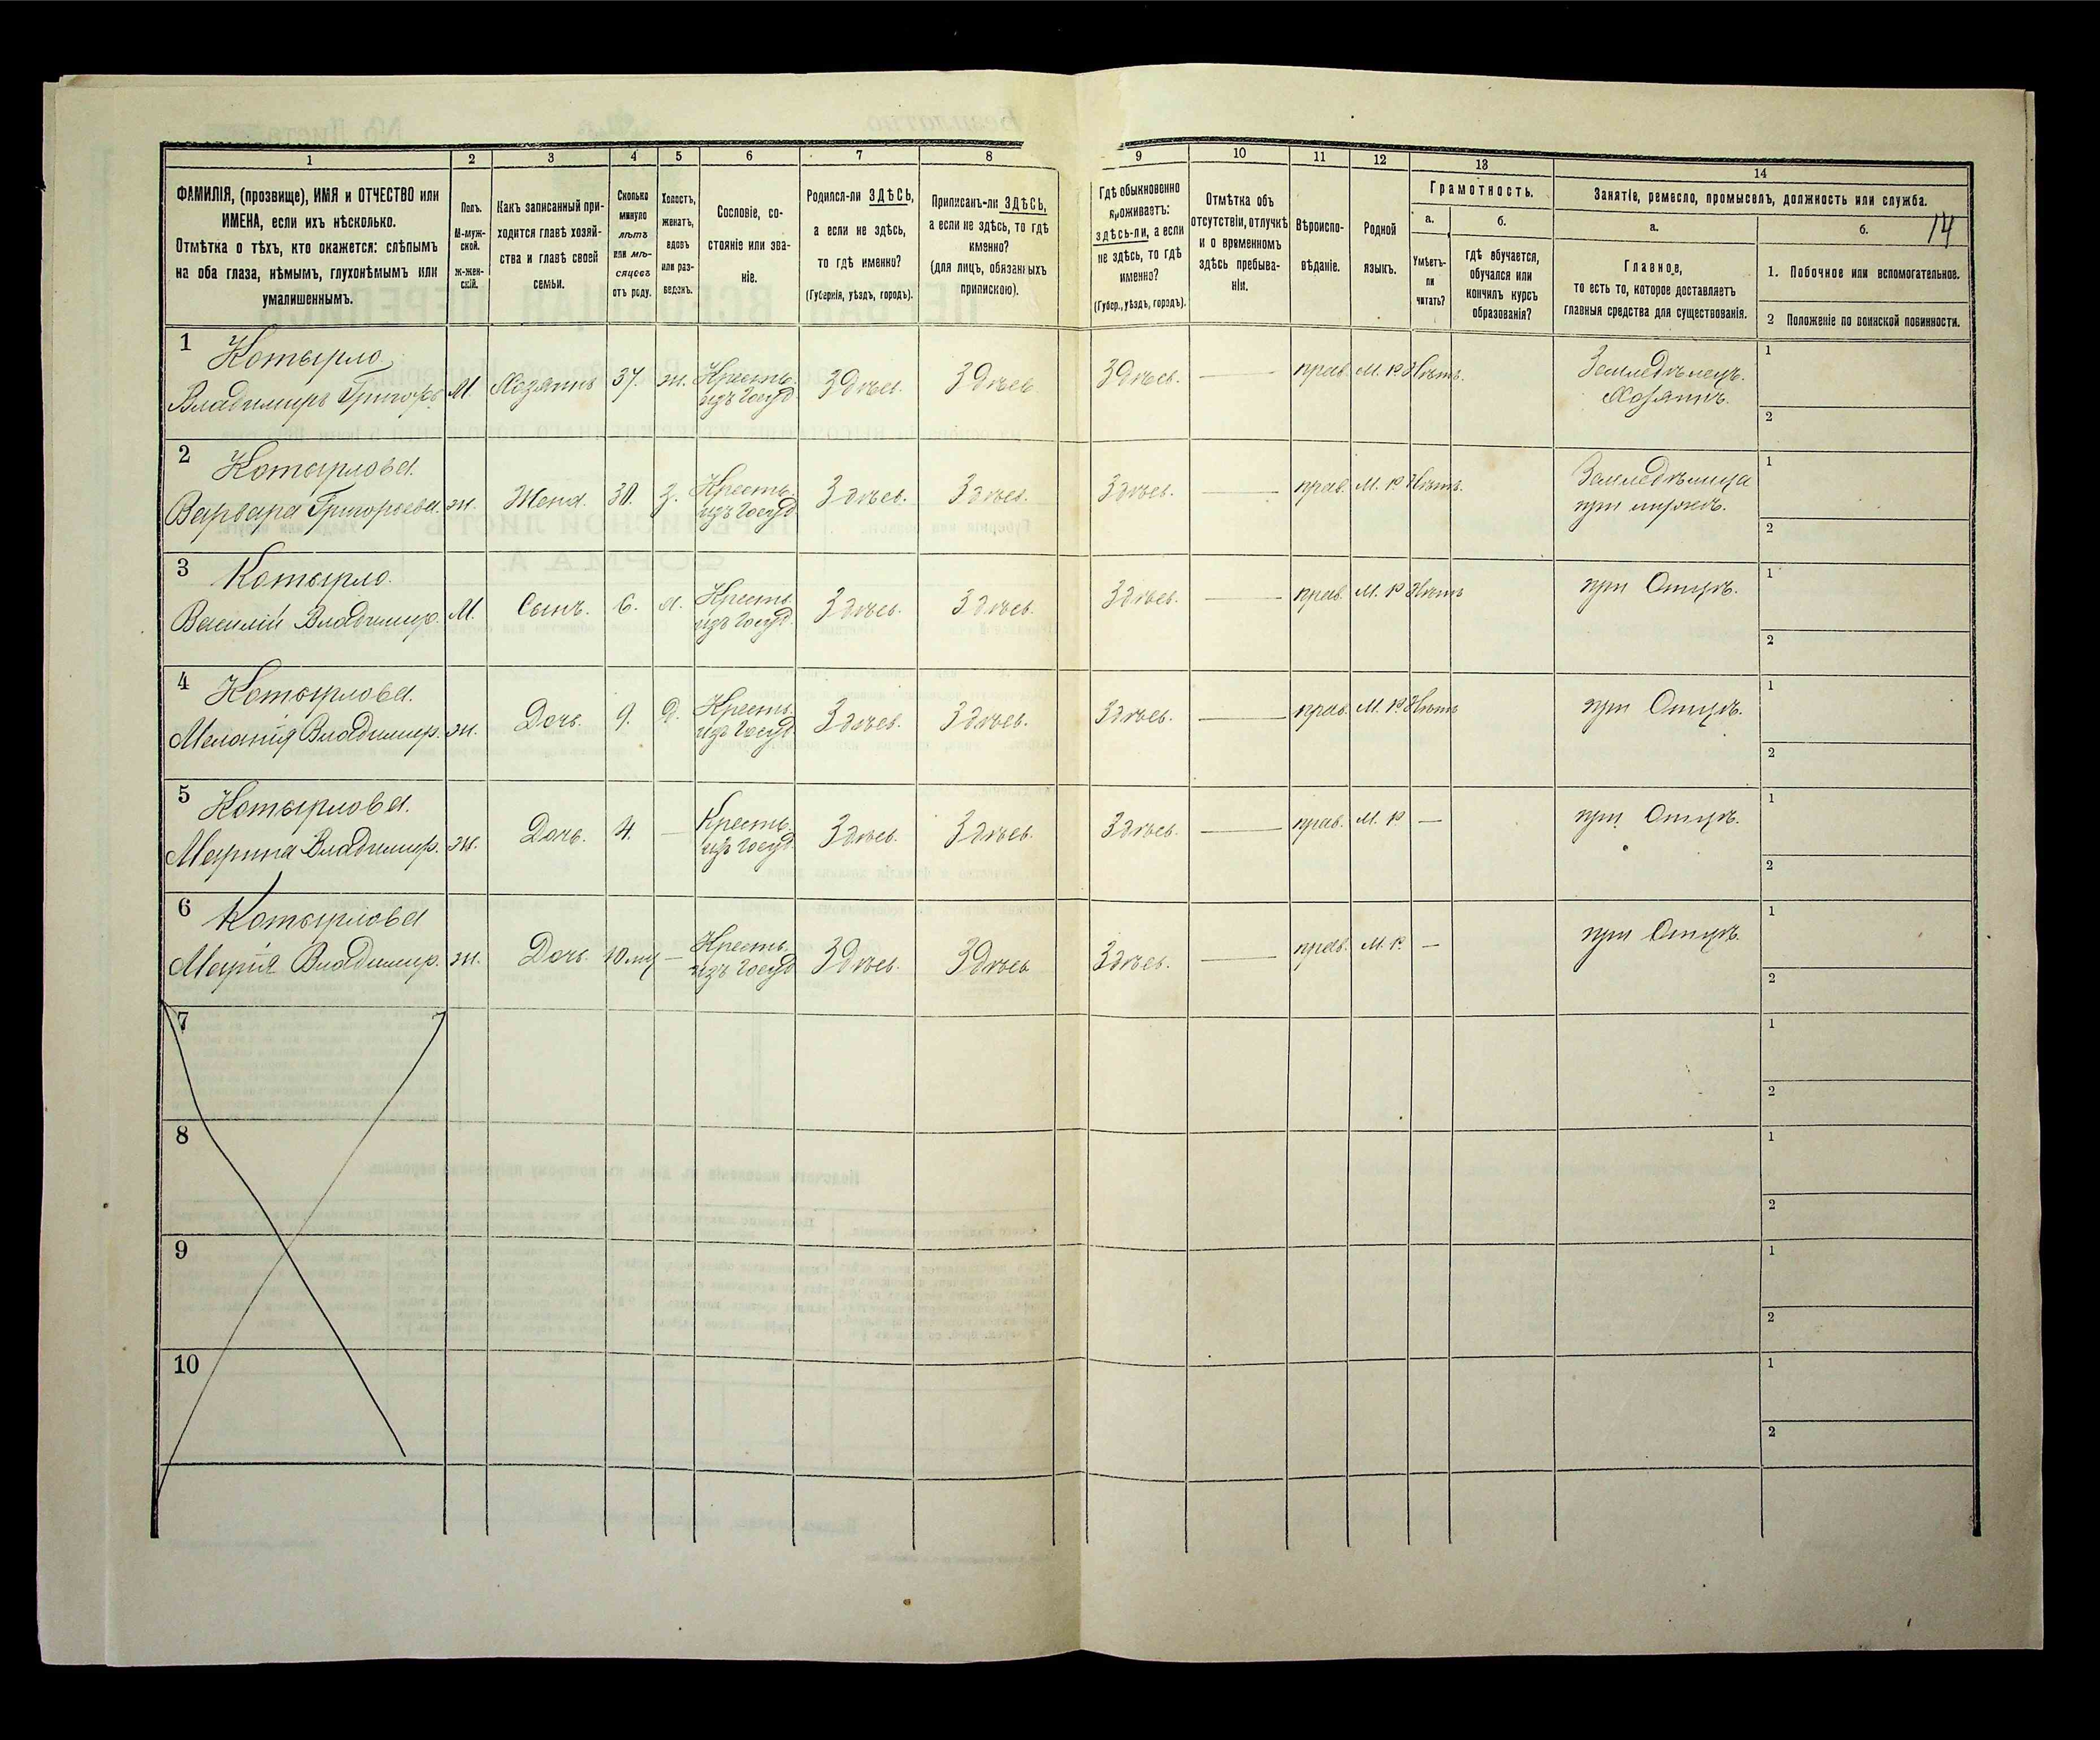 1 2 3 4 5 6 7 8 9 10 11 12 13 14
ФАМИЛІЯ, (прозвище), ИМЯ и ОТЧЕСТВО или
ИМЕНА, если ихъ нѣсколько.
Отмѣтка о тѣхъ, кто окажется: слѣпымъ
на оба глаза, нѣмымъ, глухонѣмымъ или
умалишеннымъ.
Полъ.
М-муж-
ской.
ж-жен-
скій.
Какъ записанный при-
ходится главѣ хозяй-
ства и главѣ своей
семьи.
Сколько
минуло
лѣтъ
или мѣ-
сяцевъ
отъ роду.
Холостъ,
женатъ,
вдовъ
или раз-
веденъ.
Сословіе, со-
стояніе или зва-
ніе.
Родился-ли ЗДѢСЬ,
а если не здѣсь,
то гдѣ именно?
(Губернія, уѣздъ, городъ).
Приписанъ-ли ЗДѢСЬ,
а если не здѣсь, то гдѣ
именно?
(для лицъ, обязанныхъ
припискою).
Гдѣ обыкновенно
проживаетъ:
здѣсь-ли, а если
не здѣсь, то гдѣ
именно?
(Губер., уѣздъ, городъ).
Отмѣтка объ
отсутствіи, отлучкѣ
и о временномъ
здѣсь пребыва-
ніи.
Вѣроиспо-
вѣданіе.
Родной
языкъ.
Грамотность.
а.
Умѣетъ-
ли
читать?
б.
гдѣ обучается,
обучался или
кончилъ курсъ
образованія?
Занятіе, ремесло, промыселъ, должность или служба.
а.
Главное,
то есть то, которое доставляетъ
главныя средства для существованія.
б.
14
1. Побочное или вспомогательное.
2 Положеніе по воинской повинности.
1 Котырло
Владимиръ Григорь. М. Хозяинъ 37. ж. Кресть. изъ Госуд. Здѣсь. Здѣсь Здѣсь. — прав. М. Р. Нѣтъ. Земледѣлецъ. Хозяинъ. 1
2
2 Котырлова.
Варвара Григорьева. ж. Жена. 30. з. Кресть. изъ Госуд. Здѣсь. Здѣсь. Здѣсь. — прав. М. Р. Нѣтъ. Земледѣлица при мужѣ. 1
2
3 Котырло.
Василій Владимир. М. Сынъ. 6. х. Кресть. изъ Госуд. Здѣсь. Здѣсь. Здѣсь. — прав. М. Р. Нѣтъ при Отцѣ. 1
2
4 Котырлова.
Меланія Владимир. ж. Дочь. 9. д. Кресть. изъ Госуд. Здѣсь. Здѣсь. Здѣсь. — прав. М. Р. Нѣтъ при Отцѣ. 1
2
5 Котырлова.
Марина Владимир. ж. Дочь. 4. — Кресть. изъ Госуд. Здѣсь. Здѣсь. Здѣсь. — прав. М. Р. — при Отцѣ. 1
2
6 Котырлова
Марія Владимир. ж. Дочь. 10 мц — Кресть. изъ Госуд. Здѣсь. Здѣсь Здѣсь. — прав. М. Р. — при Отцѣ. 1
2
7 1
2
8 1
2
9 1
2
10 1
2